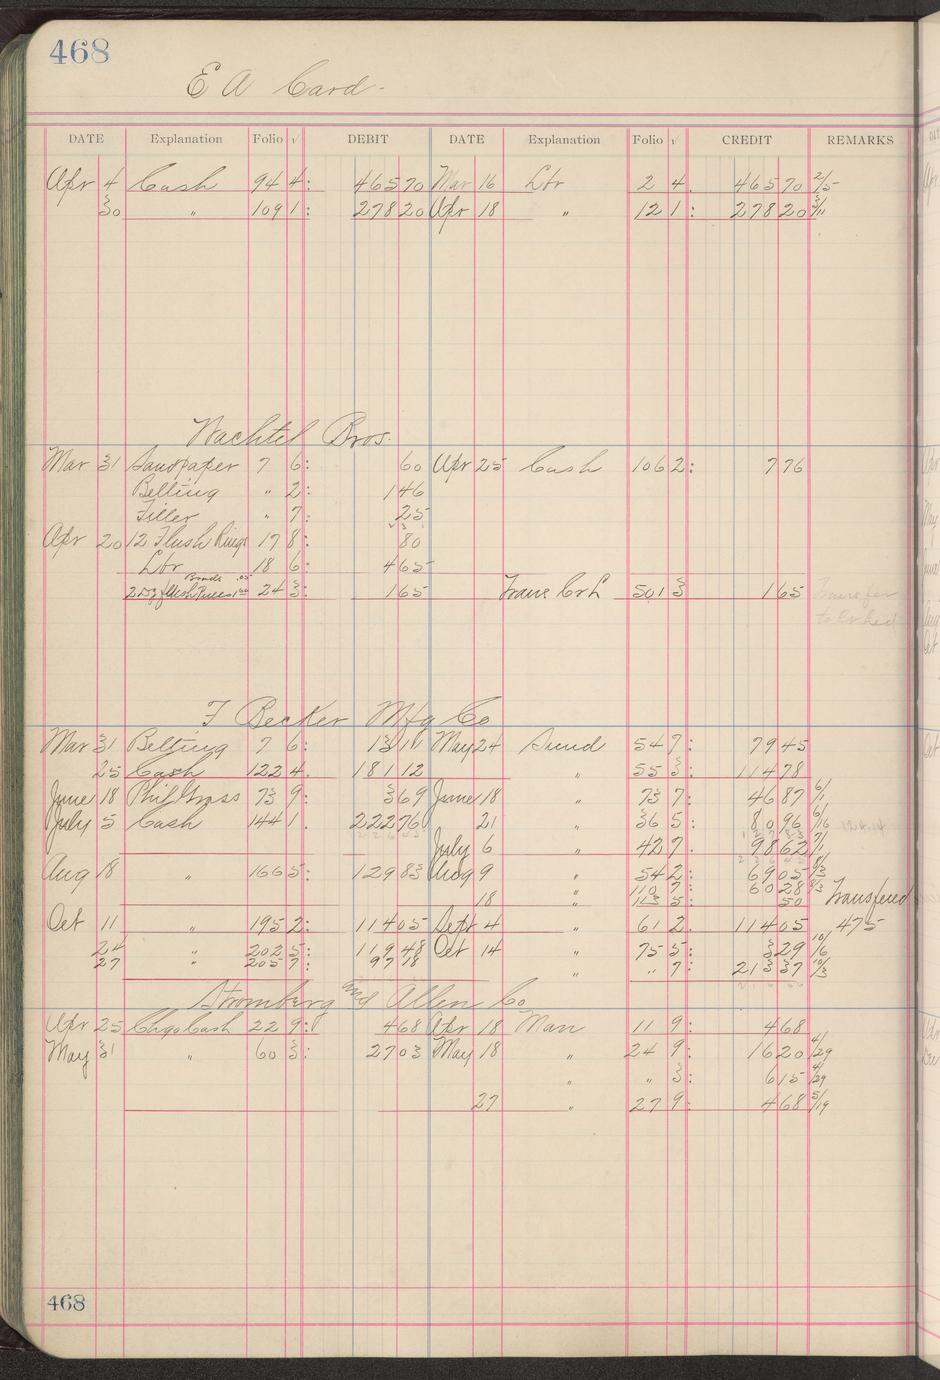 468
E A Card
DATE Explanation Folio √ DEBIT DATE Explanation Folio √ CREDIT REMARKS
Apr 4 Cash 94 4: 465 70 Mar 16 Lbr 2 4. 465 70 2/5
30 " 109 1: 278 20 Apr 18 " 12 1: 278 20 3/11
Wachtel Bros.
Mar 31 Sandpaper 7 6: 60 Apr 25 Cash 106 2: 7 76
Belting " 2: 1 46
Filler " 7: 25
Apr 20 12 Flush Rings 17 8: 80
Lbr 18 6: 4 65
24 3: 1 65 Trans Crh 501 3 1 65 Transfer
to
F Becker Mfg Co
Mar 31 Belting 7 6: 13 11 May 24 Sund 54 7: 79 45
25 Cash 122 4. 181 12 " 55 3: 114 78
June 18 Phil Gross 73 9: 3 69 June 18 " 73 7: 46 87 6/1
July 5 Cash 144 1. 222 76 21 " 36 5: 80 96 6/16
July 6 " 42 7. 98 62 7/1
Aug 18 " 166 5: 129 83 Aug 9 " 54 2: 69 05 8/3
18 " 110 7: 60 28 8/3 Transfered
" 113 5: 50
Oct 11 " 195 2: 114 05 Sept 4 " 61 2 114 05 475
24 " 202 5: 119 48 Oct 14 " 75 5: 3 29 10/16
27 " 205 7: 97 18 " " 7: 213 37 10/3
Stromberg and Allen Co
Apr 25 Chgo Cash 22 9: 4 68 Apr 18 Man 11 9: 4 68
May 31 " 60 3: 27 03 May 18 " 24 9: 16 20 4/29
" " 3: 6 15 4/29
27 " 27 9: 4 68 5/19
468